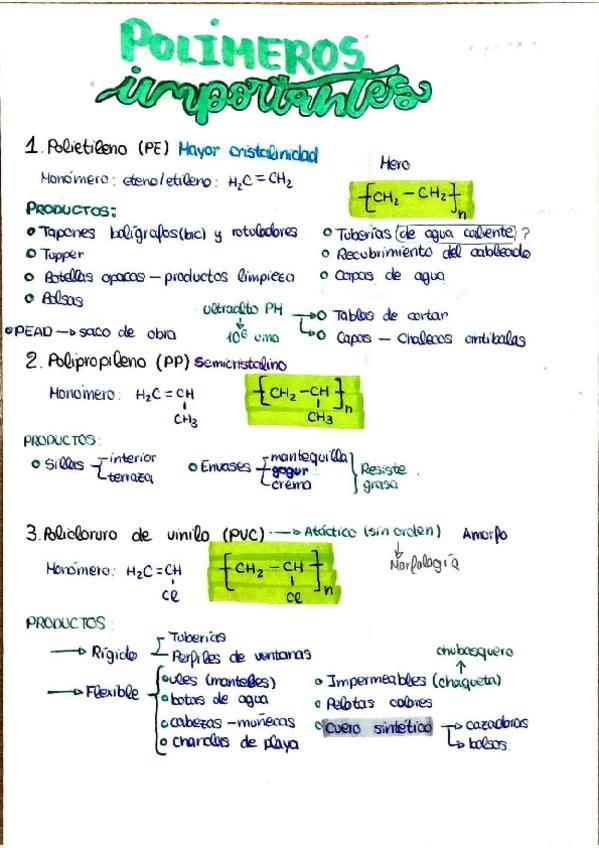 POLÍMEROS
importantes
1. Polietileno (PE) Mayor cristalinidad
Mero
Monómero: eteno/etileno: H₂C=CH₂
[CH₂-CH₂]n
PRODUCTOS:
Tapones bolígrafos (bic) y rotuladores
Tupper
Botellas opacas - productos limpieza
Bolsas
PEAD → saco de obra
Tuberías (de agua caliente)?
Recubrimiento del cableado
Capas de agua
ultraalto PM
10⁶ uma
Tablas de cortar
Capas - Chalecos antibalas
2. Polipropileno (PP) Semicristalino
Monómero: H₂C=CH
CH₃
[CH₂-CH]n
CH₃
PRODUCTOS:
Sillas
interior
terraza
Envases
mantequilla
yogur
crema
Resiste
grasa
3. Policloruro de vinilo (PVC) → Atáctico (sin orden) Amorfo
Morfología
Monómero: H₂C=CH
Cl
[CH₂-CH]n
Cl
PRODUCTOS:
→ Rígido
Tuberías
Perfiles de ventanas
→ Flexible
ules (manteles)
botas de agua
cabezas - muñecas
chanclas de playa
chubasquero
Impermeables (chaqueta)
Pelotas colores
Cuero sintético
cazadoras
bolsos.